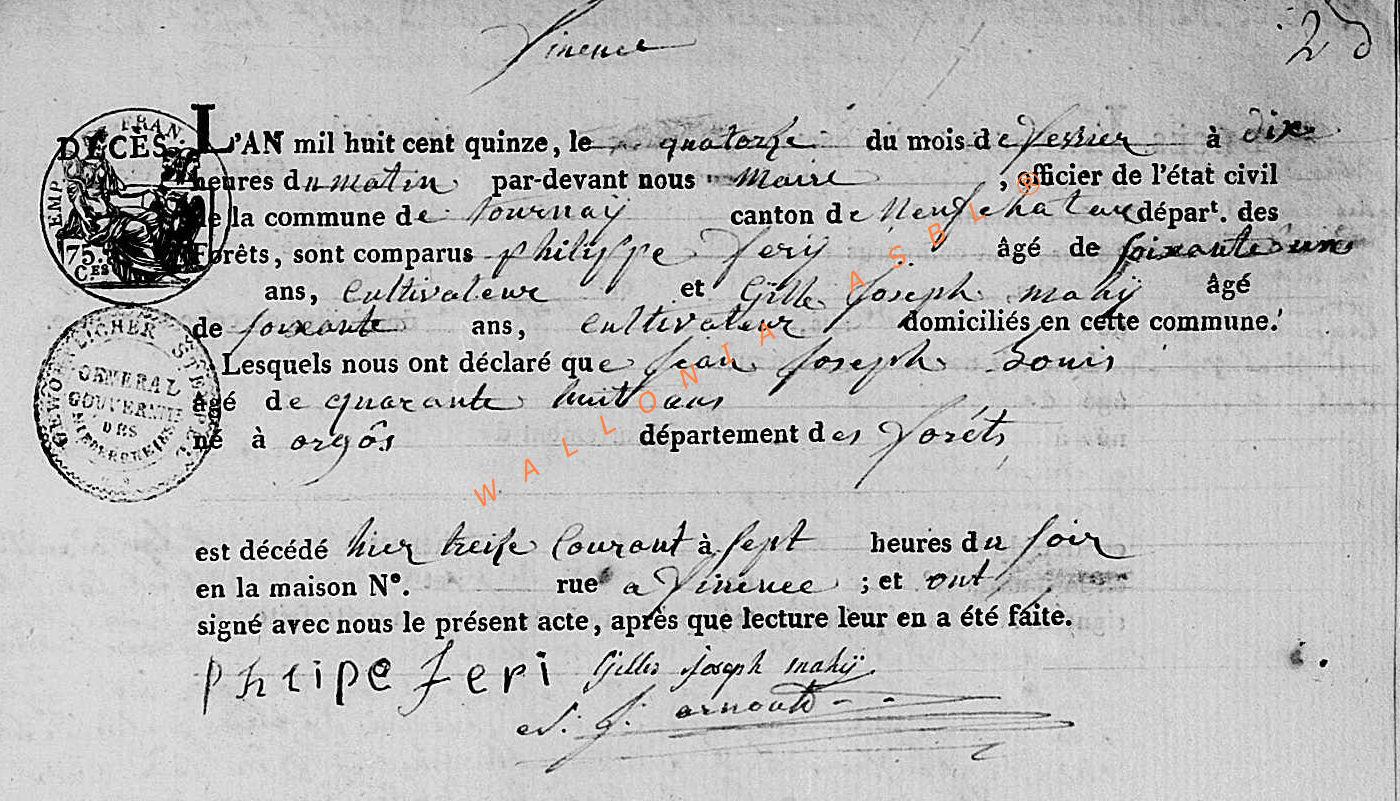 Vinence
25
DÉCÈS. L'AN mil huit cent quinze, le quatorze du mois de fevrier à dix
heures du matin par-devant nous maire, officier de l'état civil
de la commune de tournay canton de Neufchateau départ. des
Forêts, sont comparus philippe fery âgé de soixante un
ans, Cultivateur et Gille Joseph mahy âgé
de soixante ans, Cultivateur domiciliés en cette commune.
Lesquels nous ont déclaré que jean joseph Louis
âgé de quarante huit ans
né à orgôs département des forêts
est décédé hier treize Courant à sept heures du soir
en la maison N°. rue a Vinence ; et ont
signé avec nous le présent acte, après que lecture leur en a été faite.
phlipe feri Gilles joseph mahÿ
arnould
FRAN
TEMP
75.
C.ES
STEMPEL
GENERAL
GOUVERNEM
DES
NIEDERRHEINS
WALLONIA ASBL ©